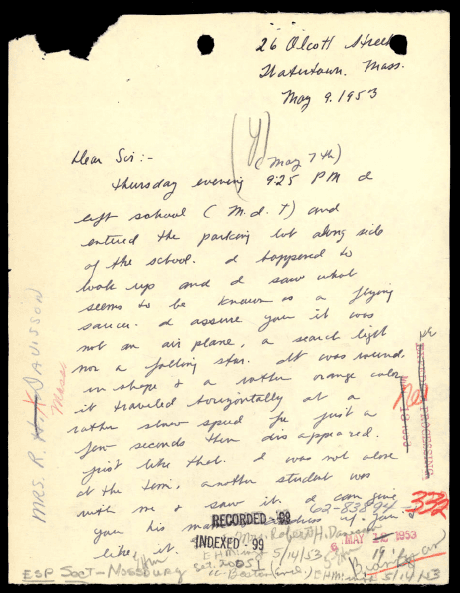 26 Olcott Street
Watertown, Mass.
May 9, 1953
(4)
Dear Sir:-
(May 7th)
Thursday evening 9:25 PM I
left school (M.I.T) and
entered the parking lot along side
of the school. I happened to
look up and I saw what
seems to be known as a flying
saucer. I assure you it was
not an air plane, a search light
nor a falling star. It was round
in shape & a rather orange color
it traveled horizontally at a
rather slow speed for just a
few seconds then dis appeared.
just like that. I was not alone
at the time, another student was
with me & saw it. I can give
you his address if you'd
like it.
MRS. R. H. DAVISSON
Mass
62-83894-332
RECORDED 99
INDEXED 99
MAY 1953
19
Mrs. Robert H. Davisson
EHM 5/14/53
EHM 5/14/53
ESP Sect-Mossburg